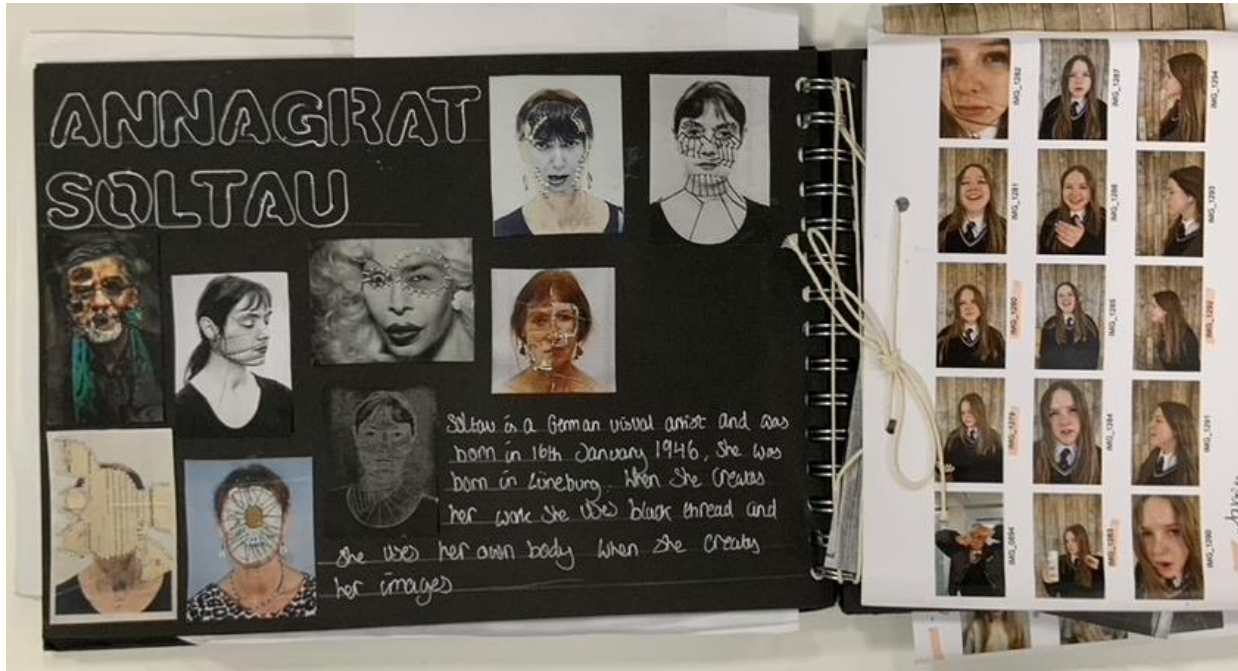 ANNAGRAT
SOLTAU
Soltau is a German visual artist and was
born in 16th January 1946, She was
born in Lüneburg. When She creates
her work she uses black thread and
she uses her own body when she creates
her images
IMG_1282
IMG_1287
IMG_1294
IMG_1281
IMG_1286
IMG_1293
IMG_1280
IMG_1285
IMG_1292
IMG_1279
IMG_1284
IMG_1291
IMG_1283
IMG_1290